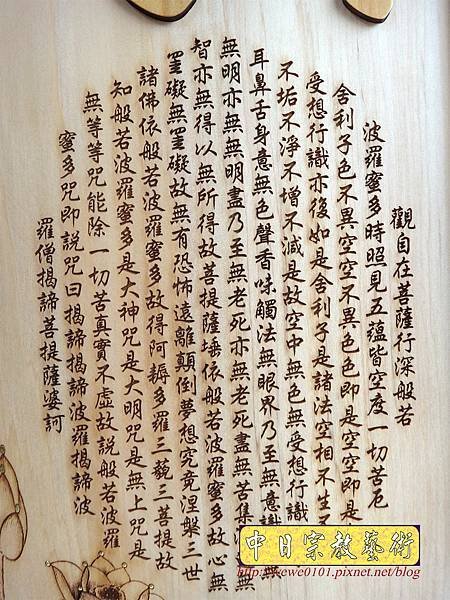 觀自在菩薩行深般若
波羅蜜多時照見五蘊皆空度一切苦厄
舍利子色不異空空不異色色即是空空即是
受想行識亦復如是舍利子是諸法空相不生
不垢不淨不增不減是故空中無色無受想行識
耳鼻舌身意無色聲香味觸法無眼界乃至無意識無
無明亦無無明盡乃至無老死亦無老死盡無苦集無
智亦無得以無所得故菩提薩埵依般若波羅蜜多故心無
罣礙無罣礙故無有恐怖遠離顛倒夢想究竟涅槃三世
諸佛依般若波羅蜜多故得阿耨多羅三藐三菩提故
知般若波羅蜜多是大神咒是大明咒是無上咒是
無等等咒能除一切苦真實不虛故說般若波羅
蜜多咒即說咒曰揭諦揭諦波羅揭諦波
羅僧揭諦菩提薩婆訶
中日宗教藝術
http://ewe0101.pixnet.net/blog